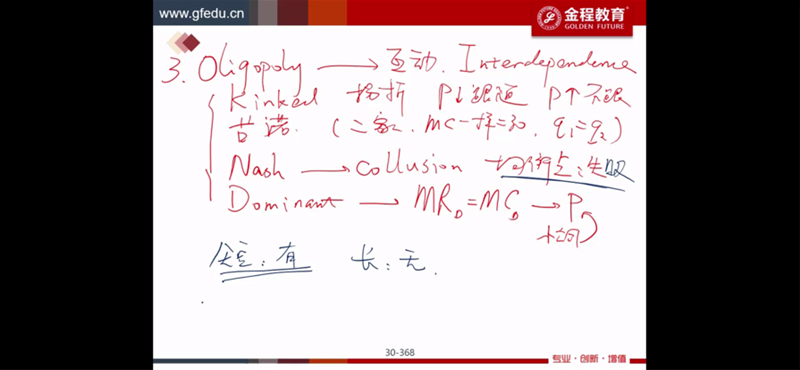 www.gfedu.cn
金程教育
GOLDEN FUTURE
3. Oligopoly → 互动. Interdependence
Kinked 拐折 P↓跟随 P↑不跟
古诺. (二家. MC一样=30. q₁=q₂)
Nash → Collusion 均衡点:失败
Dominant → MR_D=MC_D → P
短:有 长:无.
30-368
专业·创新·增值